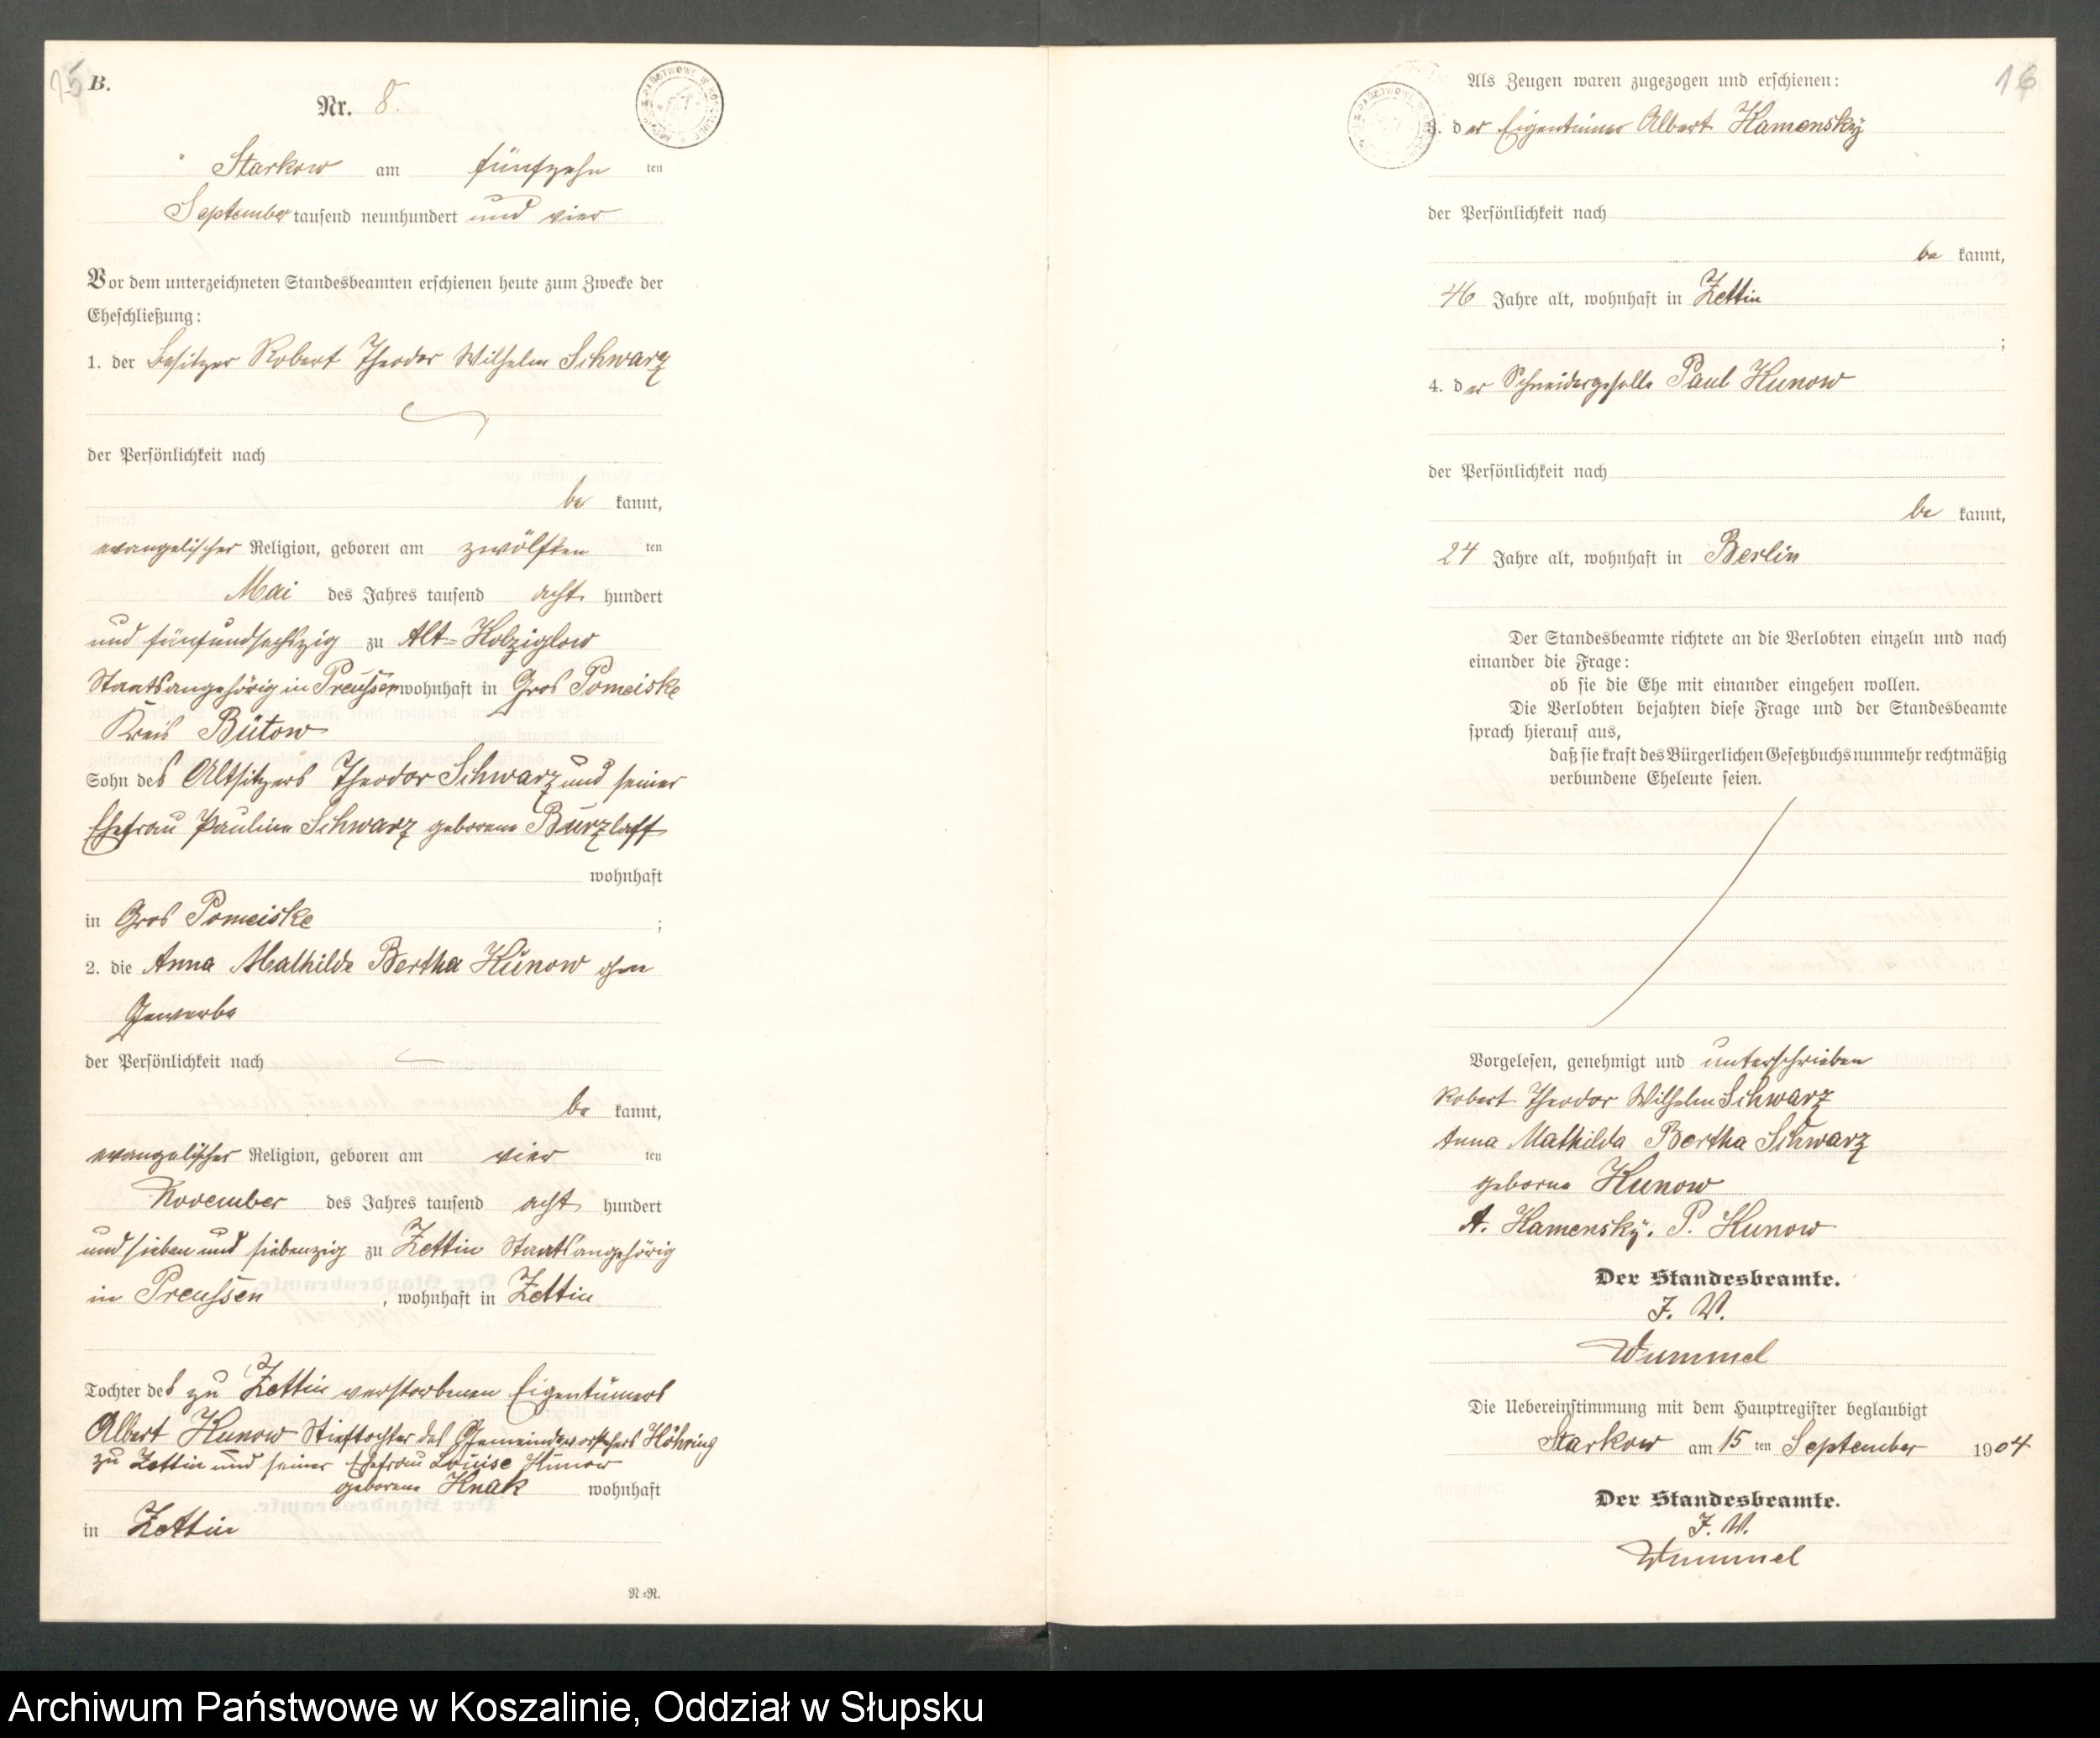 15
B.
Nr. 8.
Starkow am fünfzehn ten
September tausend neunhundert und vier
Vor dem unterzeichneten Standesbeamten erschienen heute zum Zwecke der
Eheschließung:
1. der Besitzer Robert Theodor Wilhelm Schwarz
der Persönlichkeit nach
be kannt,
evangelischer Religion, geboren am zwölften ten
Mai des Jahres tausend acht hundert
und fünfundsechszig zu Alt-Kolziglow
Staatsangehörig in Preussen wohnhaft in Gros Pomeiske
Kreis Bütow
Sohn des Altsitzers Theodor Schwarz und seiner
Ehefrau Pauline Schwarz geborene Burzlaff
wohnhaft
in Gros Pomeiske ;
2. die Anna Mathilde Bertha Kunow ohne
Gewerbe
der Persönlichkeit nach
be kannt,
evangelischer Religion, geboren am vier ten
November des Jahres tausend acht hundert
und sieben und siebenzig zu Zettin Staatsangehörig
in Preussen , wohnhaft in Zettin
Tochter des zu Zettin verstorbenen Eigentümers
Albert Kunow Stieftochter des Gemeindevorstehers Köhring
zu Zettin und seiner Ehefrau Louise Kunow
geborene Knak wohnhaft
in Zettin
N=R.
16
Als Zeugen waren zugezogen und erschienen:
3. der Eigentümer Albert Kamensky
der Persönlichkeit nach
be kannt,
46 Jahre alt, wohnhaft in Zettin
;
4. der Schneidergeselle Paul Kunow
der Persönlichkeit nach
be kannt,
24 Jahre alt, wohnhaft in Berlin
Der Standesbeamte richtete an die Verlobten einzeln und nach
einander die Frage:
ob sie die Ehe mit einander eingehen wollen.
Die Verlobten bejahten diese Frage und der Standesbeamte
sprach hierauf aus,
daß sie kraft des Bürgerlichen Gesetzbuchs nunmehr rechtmäßig
verbundene Eheleute seien.
Vorgelesen, genehmigt und unterschrieben
Robert Theodor Wilhelm Schwarz
Anna Mathilda Bertha Schwarz
geborne Kunow
A. Kamensky. P. Kunow
Der Standesbeamte.
J. V.
Wummel
Die Uebereinstimmung mit dem Hauptregister beglaubigt
Starkow am 15 ten September 1904
Der Standesbeamte.
J. V.
Wummel
Archiwum Państwowe w Koszalinie, Oddział w Słupsku